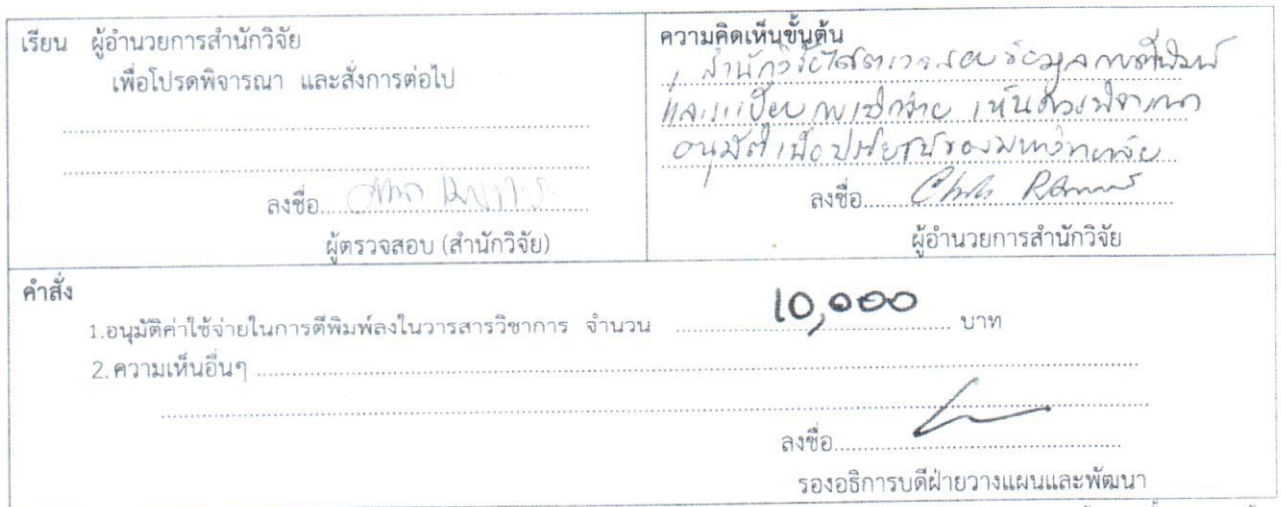 เรียน ผู้อำนวยการสำนักวิจัย
เพื่อโปรดพิจารณา และสั่งการต่อไป
ลงชื่อ
ผู้ตรวจสอบ (สำนักวิจัย)
ความคิดเห็นขั้นต้น
สำนักวิจัยได้ตรวจสอบข้อมูลการตีพิมพ์
และระเบียบการเบิกจ่าย เห็นควรพิจารณา
อนุมัติเพื่อประโยชน์ของมหาวิทยาลัย
ลงชื่อ
ผู้อำนวยการสำนักวิจัย
คำสั่ง
1.อนุมัติค่าใช้จ่ายในการตีพิมพ์ลงในวารสารวิชาการ จำนวน 10,000 บาท
2.ความเห็นอื่นๆ
ลงชื่อ
รองอธิการบดีฝ่ายวางแผนและพัฒนา